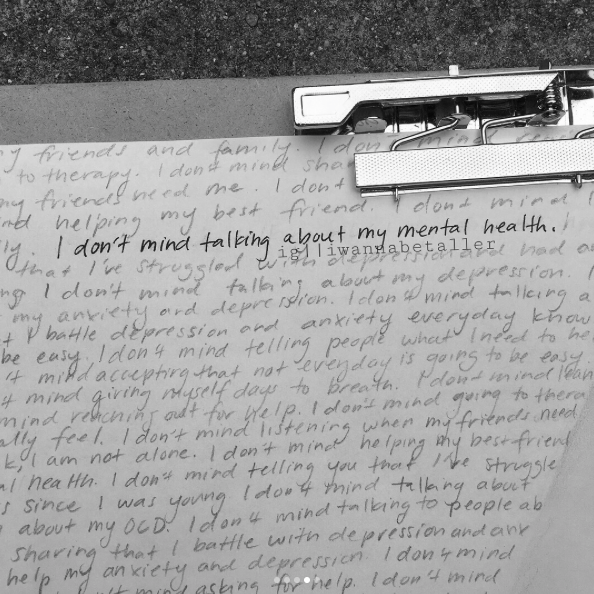 my friends and family. I don't mind
to therapy. I don't mind sha
my friends need me. I don't
helping my best friend. I don't mind
I don't mind talking about my mental health.
ig||iwannabetaller
that I've struggled with depression and had
I don't mind talking about my depression. I
my anxiety and depression. I don't mind talking a
I battle depression and anxiety everyday know
be easy. I don't mind telling people what I need to he
't mind accepting that not everyday is going to be easy.
't mind giving myself days to breath. I don't mind lean
mind reaching out for help. I don't mind going to thera
ally feel. I don't mind listening when my friends need
k, I am not alone. I don't mind helping my best friend
al health. I don't mind telling you that I've struggle
s since I was young I don't mind talking about
about my OCD. I don't mind talking to people ab
sharing that I battle with depression and anx
help my anxiety and depression. I don't mind
mind asking for help. I don't mind